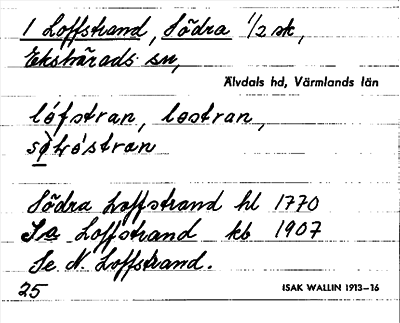 1 Loffstrand, Södra 1/2 sk,
Ekshärads sn,
Älvdals hd, Värmlands län
lófstran, lostran,
Södra Loffstrand hl 1770
Sa Loffstrand kb 1907
Se N. Loffstrand.
25
ISAK WALLIN 1913-16